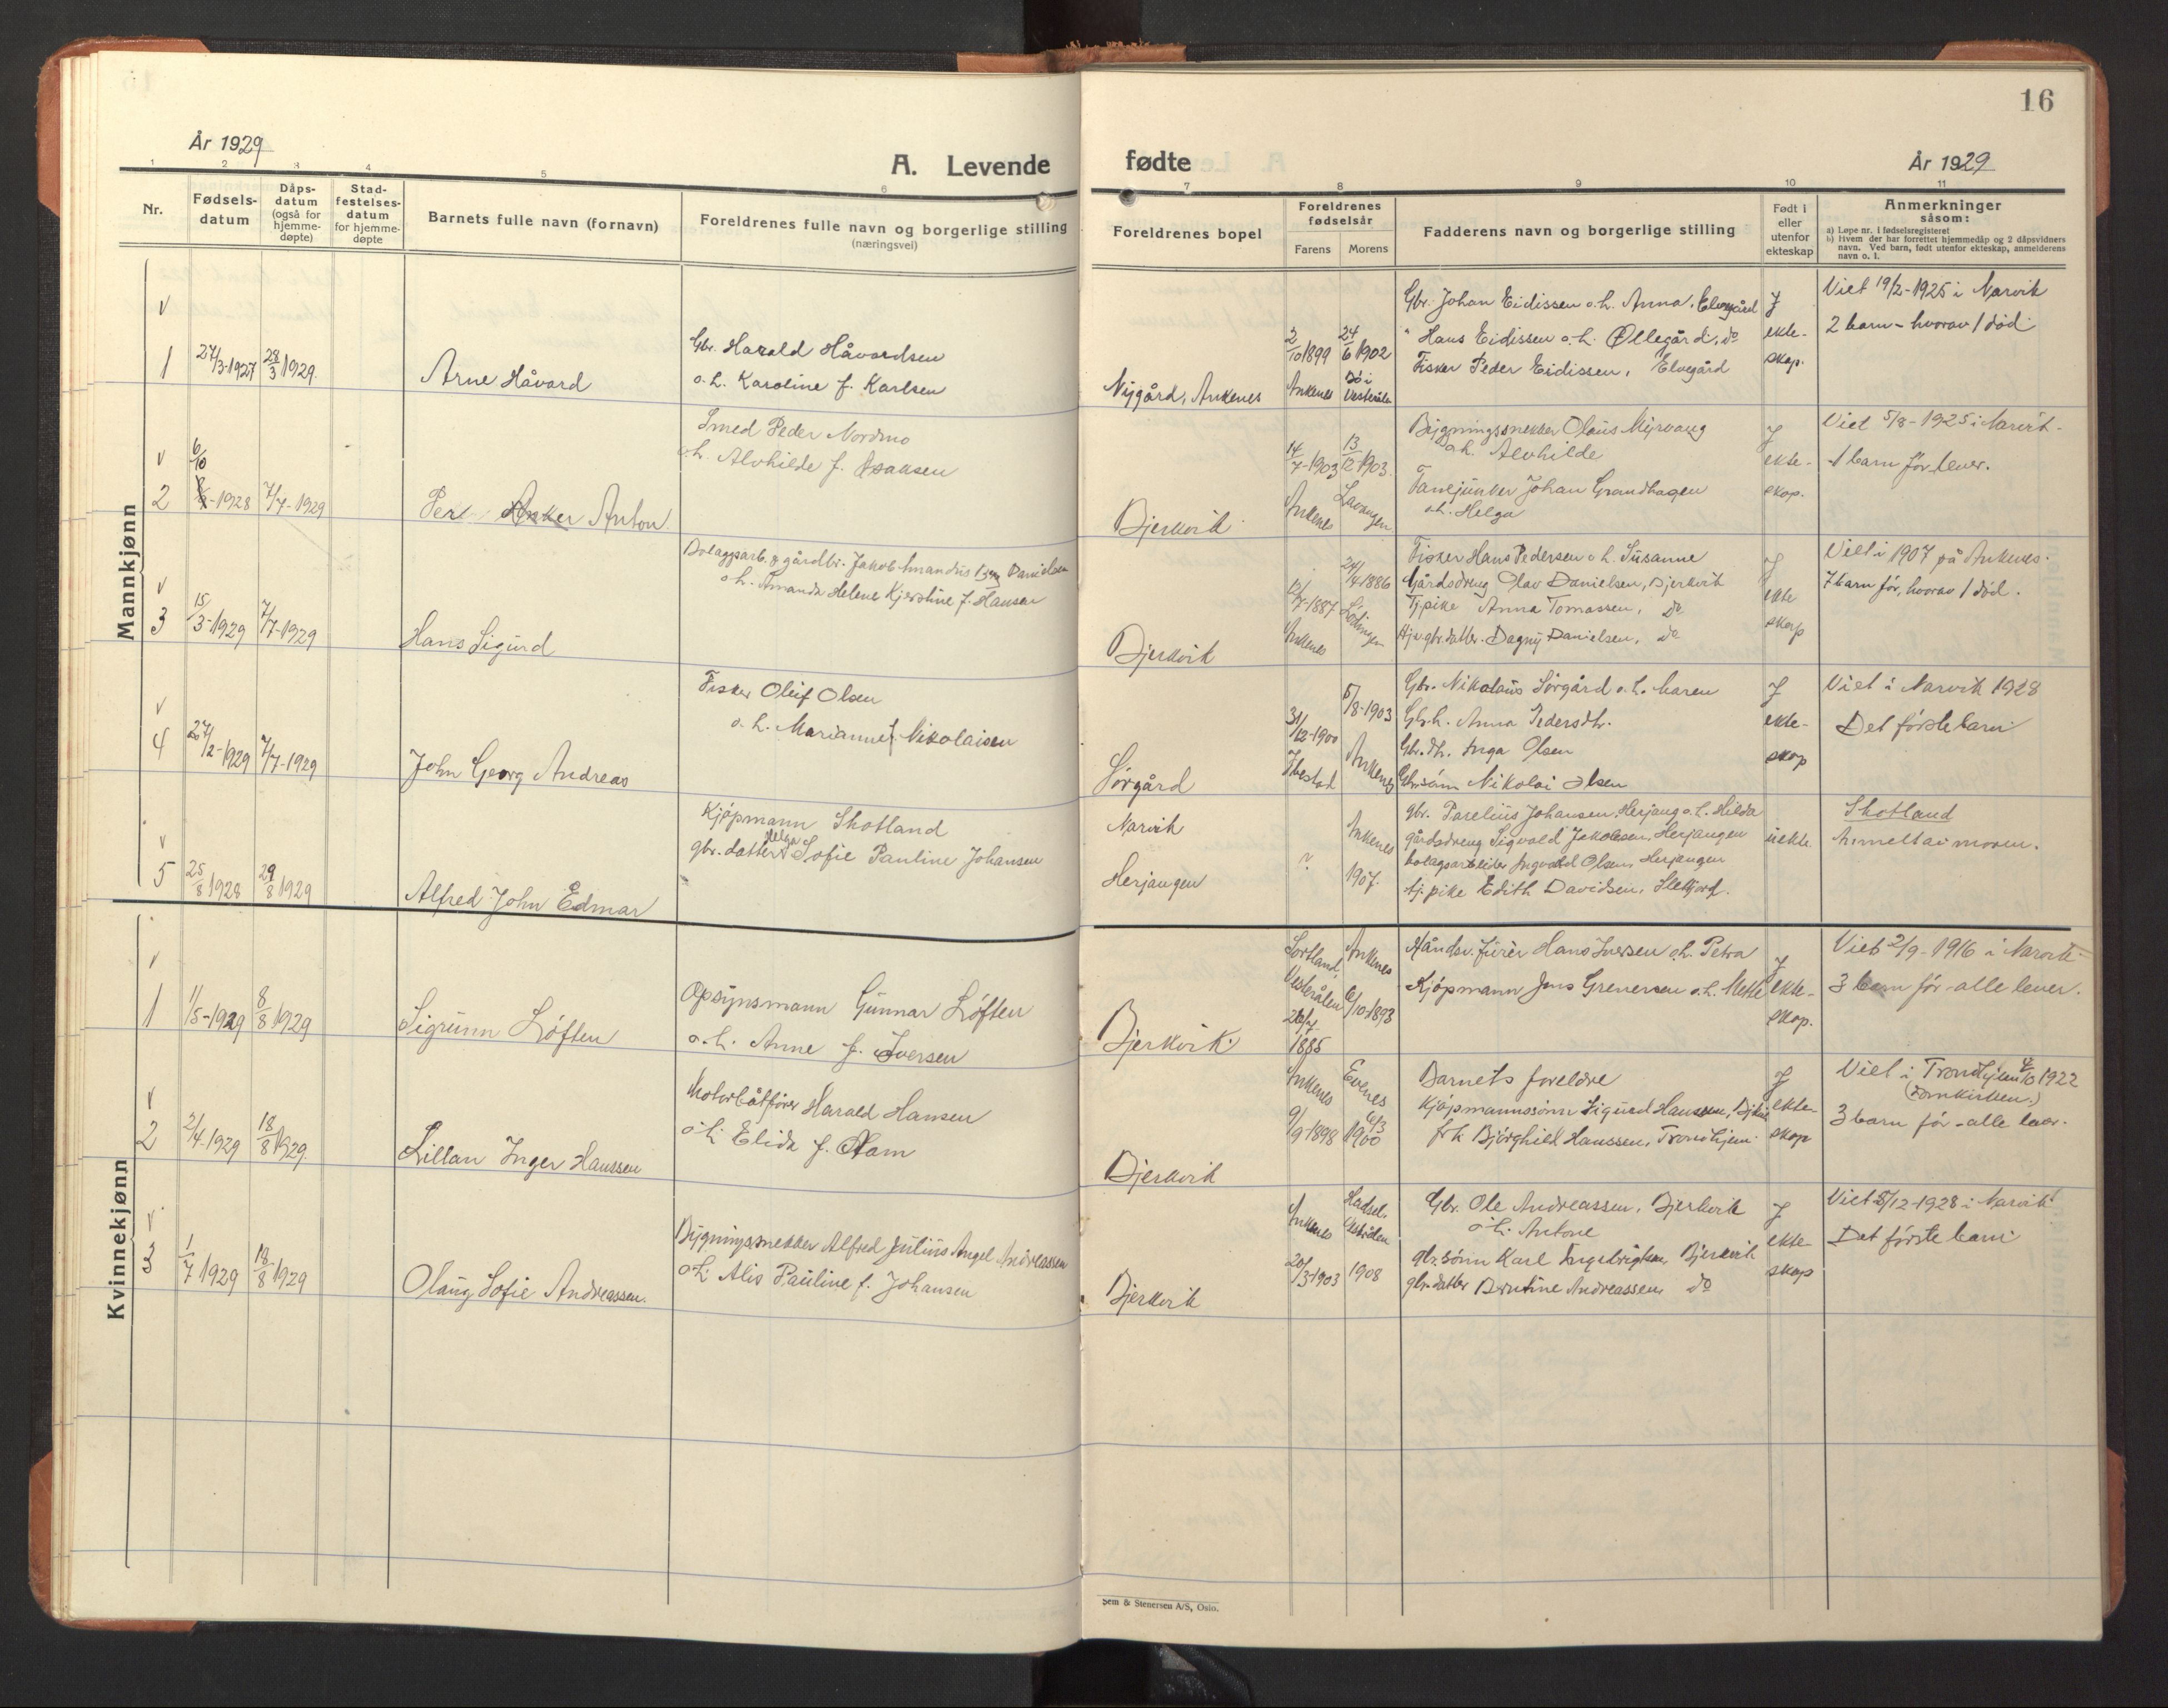 16
År 1929
A. Levende
fødte
År 1929
1 2 3 4 5 6
7 8 9 10 11
Nr.
Fødsels-
datum
Dåps-
datum
(også for
hjemme-
døpte)
Stad-
festelses-
datum
for hjemme-
døpte
Barnets fulle navn (fornavn)
Foreldrenes fulle navn og borgerlige stilling
(næringsvei)
Foreldrenes bopel
Foreldrenes
fødselsår
Farens Morens
Fadderens navn og borgerlige stilling
Født i
eller
utenfor
ekteskap
Anmerkninger
såsom:
a) Løpe nr. i fødselsregisteret
b) Hvem der har forrettet hjemmedåp og 2 dåpsvidners
navn. Ved barn, født utenfor ekteskap, anmelderens
navn o. l.
Mannkjønn
v
1
27/3-1927
28/3 1929.
Arne Håvard
Gbr. Harald Håvardsen
o.h. Karoline f. Karlsen
Nygård, Ankenes
2/10 1899
Ankenes
24/6 1902
Bø i
Vesterålen
Gbr. Johan Eidissen o.h. Anna, Elvegård
" Hans Eidissen o.h. Ollegård, do
Fisker Peder Eidissen, Elvegård
I
ekte-
skap.
Viet 19/2-1925 i Narvik
2 barn - hvorav 1 død
v
2
6/10
-1928
7/7-1929
Per Anker Anton
Smed Peder Nordmo
o.h. Alvhilde f. Isaksen
Bjerkvik
14/7-1903
Ankenes
13/12 1903.
Lavangen
Bygningssnekker Olaus Myrvang
o.h. Alvhilde
Fanejunker Johan Grandhagen
o.h. Helga
I
ekte-
skap.
Viet 5/8-1925 i Narvik.
1 barn før lever.
v
3
15/3-1929
7/7-1929
Hans Sigurd
Bolagsarb. & gårdbr. Jakob Amandus Danielsen
o.h. Amanda Helene Kjerstine f. Hansen
Bjerkvik
12/7-1887
Ankenes
24/4 1886
Lødingen
Fisker Hans Pedersen o.h. Susanne
Gårdsdreng Olav Danielsen, Bjerkvik
Tjpike Anna Tomassen, do
Hjv. gbr. datter. Dagny Danielsen, do
I
ekte
skap
Viet i 1907 på Ankenes.
7 barn før, hvorav 1 død.
v
4
27/2-1929
7/7-1929
John Georg Andreas
Fisker Oleif Olsen
o.h. Marianne f. Nikolaisen
Sørgård
31/12-1900
Ibestad
5/8-1903
Ankenes
Gbr. Nikolaus Sørgård o.h. Maren
Gbr.h. Anna Pedersdtr.
Gbr.dtr. Inga Olsen
Gbr.sønn Nikolai Olsen
I
ekte-
skap
Viet i Narvik 1928
Det første barn
v
5
25/8 1928
29/8 1929
Alfred John Edmar
Kjøpmann Skotland
gbr.datter Helga Sofie Pauline Johansen
Narvik
Herjangen
?
Ankenes
1907.
gbr. Parelius Johansen, Herjang o.h. Hilda
gårdsdreng Sigvald Jakobsen, Herjangen
bolagsarbeider Ingvald Olsen, Herjangen
tj.pike Edith Davidsen,
uekte
Skotland
Anmeldt av moren.
Kvinnekjønn
v
1
1/5-1929
8/8 1929
Sigrunn Løften
Opsynsmann Gunnar Løften
o.h. Anne f. Iversen
Bjerkvik.
Sortland,
Vesterålen
26/7
1885
Ankenes
6/10-1893
Håndv.fører Hans Iversen o.h. Petra
Kjøpmann Jens Grenersen o.h. Mette
I
ekte-
skap.
Viet 2/9-1916 i Narvik
3 barn før - alle lever.
v
2
2/4-1929
18/8 1929.
Lillan Inger Hanssen
Motorbåtfører Harald Hansen
o.h. Elida f. Aam
Bjerkvik
Ankenes
9/9-1898
Evenes
6/3
1900
Barnets foreldre
Kjøpmannssønn Sigurd Hanssen, Bjkvik
frk. Bjørghild Hanssen, Trondhjem.
I
ekte-
skap
Viet i Trondhjem 4/10 1922
(Domkirken.)
3 barn før - alle lever.
v
3
1/7 1929
18/8 1929
Olaug Sofie Andreassen.
Bygningssnekker Alfred Julius Angel Andreassen
o.h. Alis Pauline f. Johansen
Bjerkvik
Ankenes
20/3-1903
Hadsel.
Vesterålen
1908
Gbr. Ole Andreassen, Bjerkvik
o.h. Antone
gbr.sønn Karl Ingebrigtsen, Bjerkvik
gbr.datter Berntine Andreassen, do
I
ekte-
skap
Viet 5/12-1928 i Narvik
Det første barn
Sem & Stenersen A/S, Oslo.